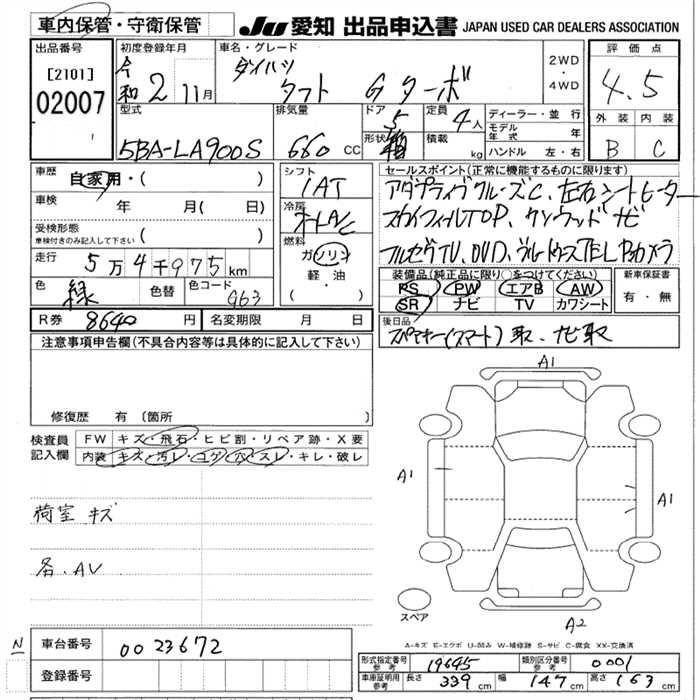 車内保管・守衛保管 JU 愛知 出品申込書 JAPAN USED CAR DEALERS ASSOCIATION
出品番号 初度登録年月 車名・グレード 評価点
[2101] 令和 2 年 11月 ダイハツ 2WD・4WD 4.5
02007 タフト Gターボ 外装 内装
型式 排気量 ドア 5 定員 4人 ディーラー・並行 B C
5BA-LA900S 660 CC 形状 箱 積載 kg モデル年式 年
ハンドル 左・右
車歴 自家用・( ) シフト セールスポイント(正常に機能するものに限ります)
車検 年 月( 日) 1AT アダプティブクルーズC、左右シートヒーター
受検形態 冷房 スカイフィールTOP、ケンウッドナビ
車検付きのみ記入して下さい ( ) フルセグTV、DVD、ブルートゥースTEL Bカメラ
走行 5万4千975km 燃料 ガソリン 軽油 ( ) 装備品(純正品に限り○をつけてください) 新車保証書
色 緑 色替 色コード G63 PS PW エアB AW 有・無
SR ナビ TV カワシート
R券 8640 円 名変期限 月 日 後日品
注意事項申告欄(不具合内容等は具体的に記入して下さい) スペアキー(スマート)取、ナビ取
修復歴 有(箇所
検査員記入欄 FW キズ・飛石・ヒビ割・リペア跡・X要
内装 キズ・汚レ・コゲ・穴・スレ・キレ・破レ
A1
A1
A1
荷室 キズ
各、AU
スペア
A2
A-キズ E-エクボ U-凹み W-補修跡 S-サビ C-腐食 XX-交換済
N 車台番号 0023672
形式指定番号 参考 19645 類別区分番号 参考 0001
登録番号 車庫証明用 参考 長さ 339cm 幅 147cm 高さ 163cm